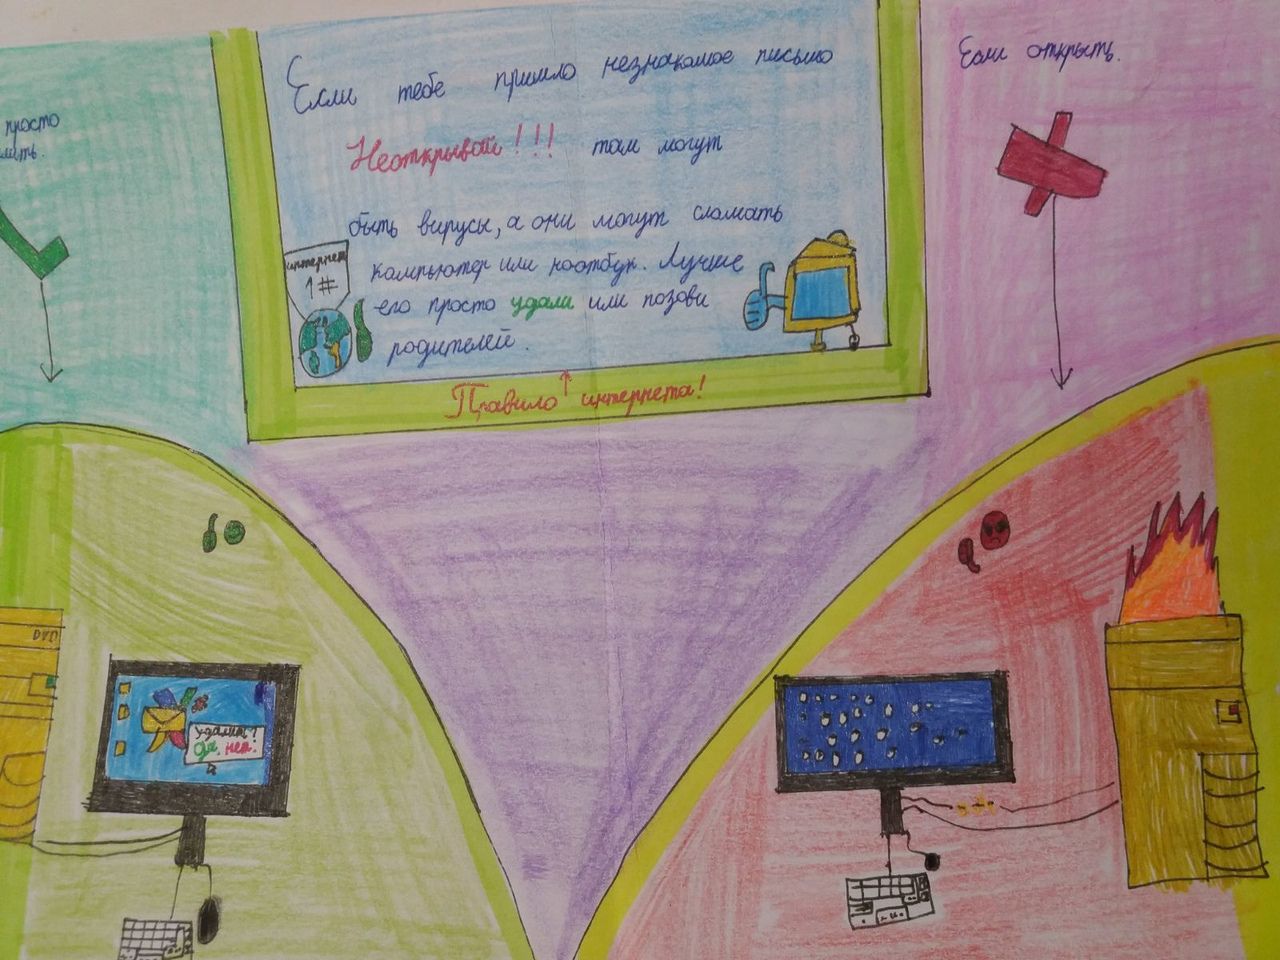 просто
Если тебе пришло незнакомое письмо
Неоткрывай!!! там могут
быть вирусы, а они могут сломать
компьютер или ноотбук. Лучше
его просто удали или позови
родителей.
интернет
1#
Правило интернета!
Если открыть.
DVD
Удалит?
Да. нет.